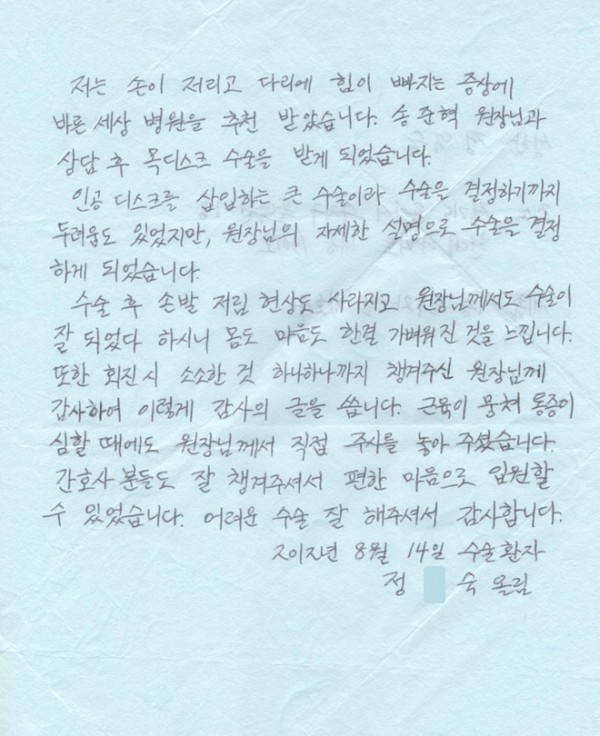 저는 손이 저리고 다리에 힘이 빠지는 증상에
바른 세상 병원을 추천 받았습니다. 송준혁 원장님과
상담 후 목디스크 수술을 받게 되었습니다.
인공 디스크를 삽입하는 큰 수술이라 수술을 결정하기까지
두려움도 있었지만, 원장님의 자세한 설명으로 수술을 결정
하게 되었습니다.
수술 후 손발 저림 현상도 사라지고 원장님께서도 수술이
잘 되었다 하시니 몸도 마음도 한결 가벼워진 것을 느낍니다.
또한 회진시 소소한 것 하나하나까지 챙겨주신 원장님께
감사하여 이렇게 감사의 글을 씁니다. 근육이 뭉쳐 통증이
심할 때에도 원장님께서 직접 주사를 놓아 주셨습니다.
간호사 분들도 잘 챙겨주셔서 편한 마음으로 입원할
수 있었습니다. 어려운 수술 잘 해주셔서 감사합니다.
2012년 8월 14일 수술환자
정 숙 올림